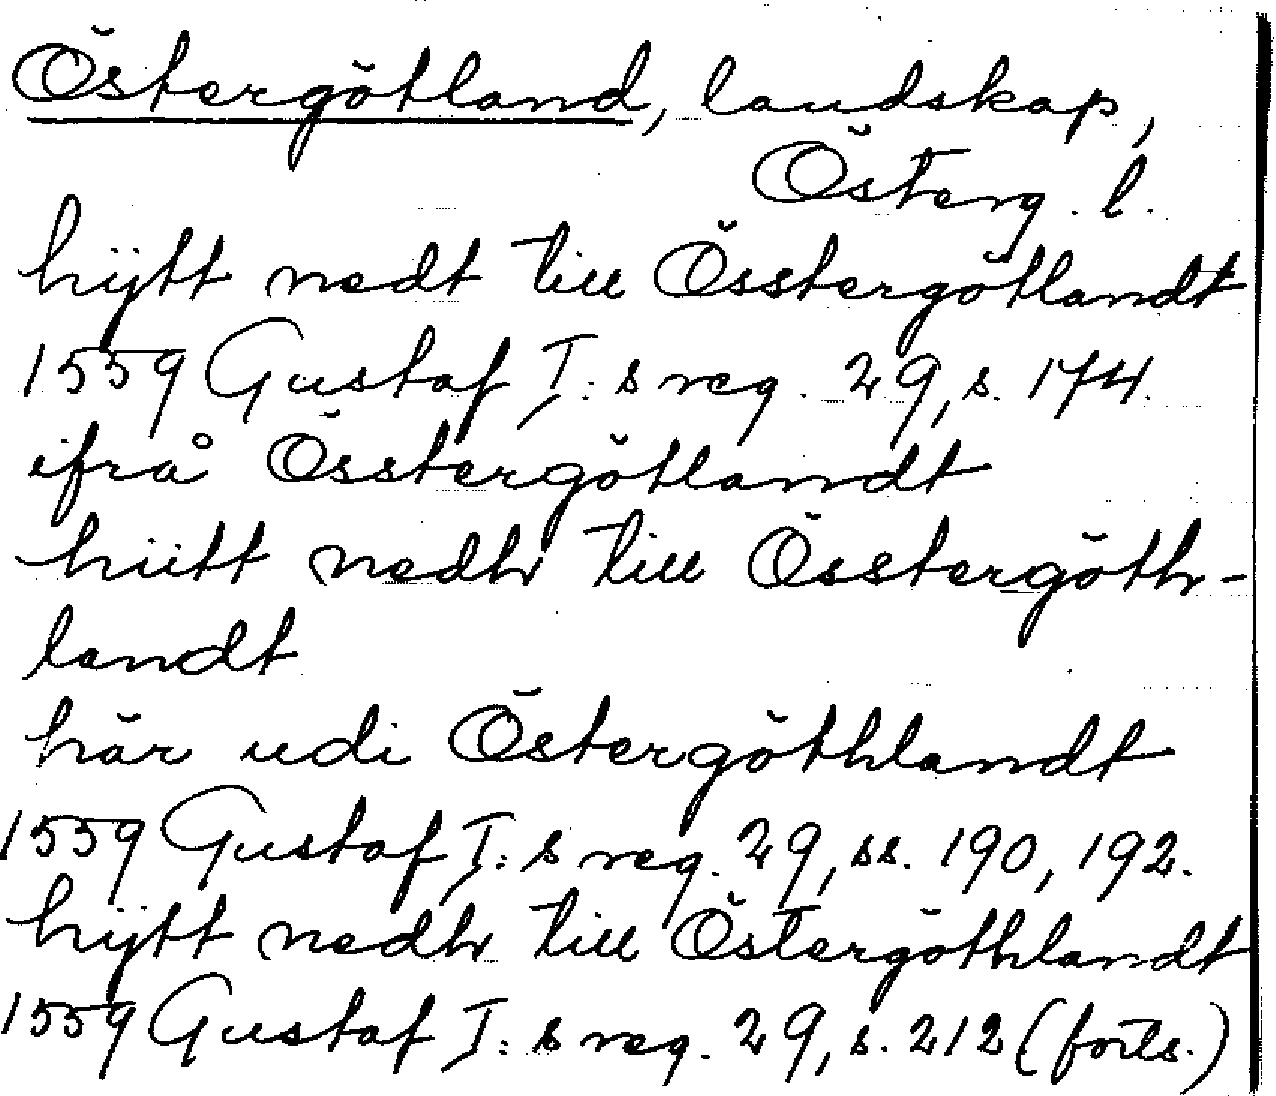 Östergötland, landskap,
Österg. l.
hijtt nedt till Össtergötlandt
1559 Gustaf I:s reg. 29, s. 174.
ifrå Össtergötlandt
hiitt nedh till Össtergöth-
landt
här udi Östergöthlandt
1559 Gustaf I:s reg. 29, ss. 190, 192.
hijtt nedh till Östergöthlandt
1559 Gustaf I:s reg. 29, s. 212 (forts.)